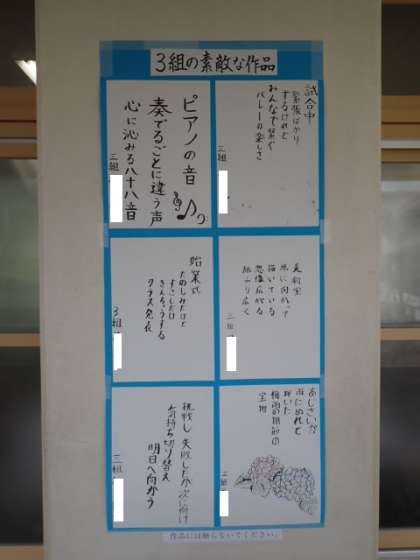 3組の素敵な作品
試合中
緊張ばかり
するけれど
みんなで繋ぐ
バレーの楽しさ
三組
ピアノの音
奏でるごとに違う声
心に沁みる八十八音
三組
美術室
紙に向かって
描いている
想像広がる
三組
始業式
たのしみだけど
すこしだけ
きんちょうする
クラス発表
3組
あじさいが
雨にぬれて
輝いた
梅雨の時節の
宝物
三組
挑戦し失敗したが次に向け
気持ち切り替え
明日へ向かう
三組
作品には触らないでください。